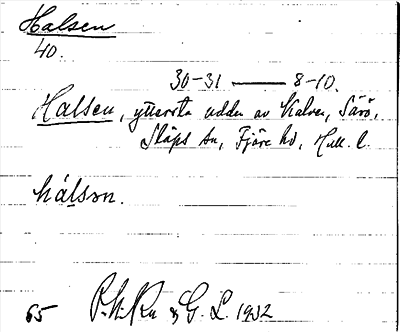 Halsen
40.
30-31 — 8-10.
Halsen, yttersta udden av Kalven, Särö,
Släps sn, Fjäre hd, Hall. l.
hálsɔn.
65 &G. L. 1932